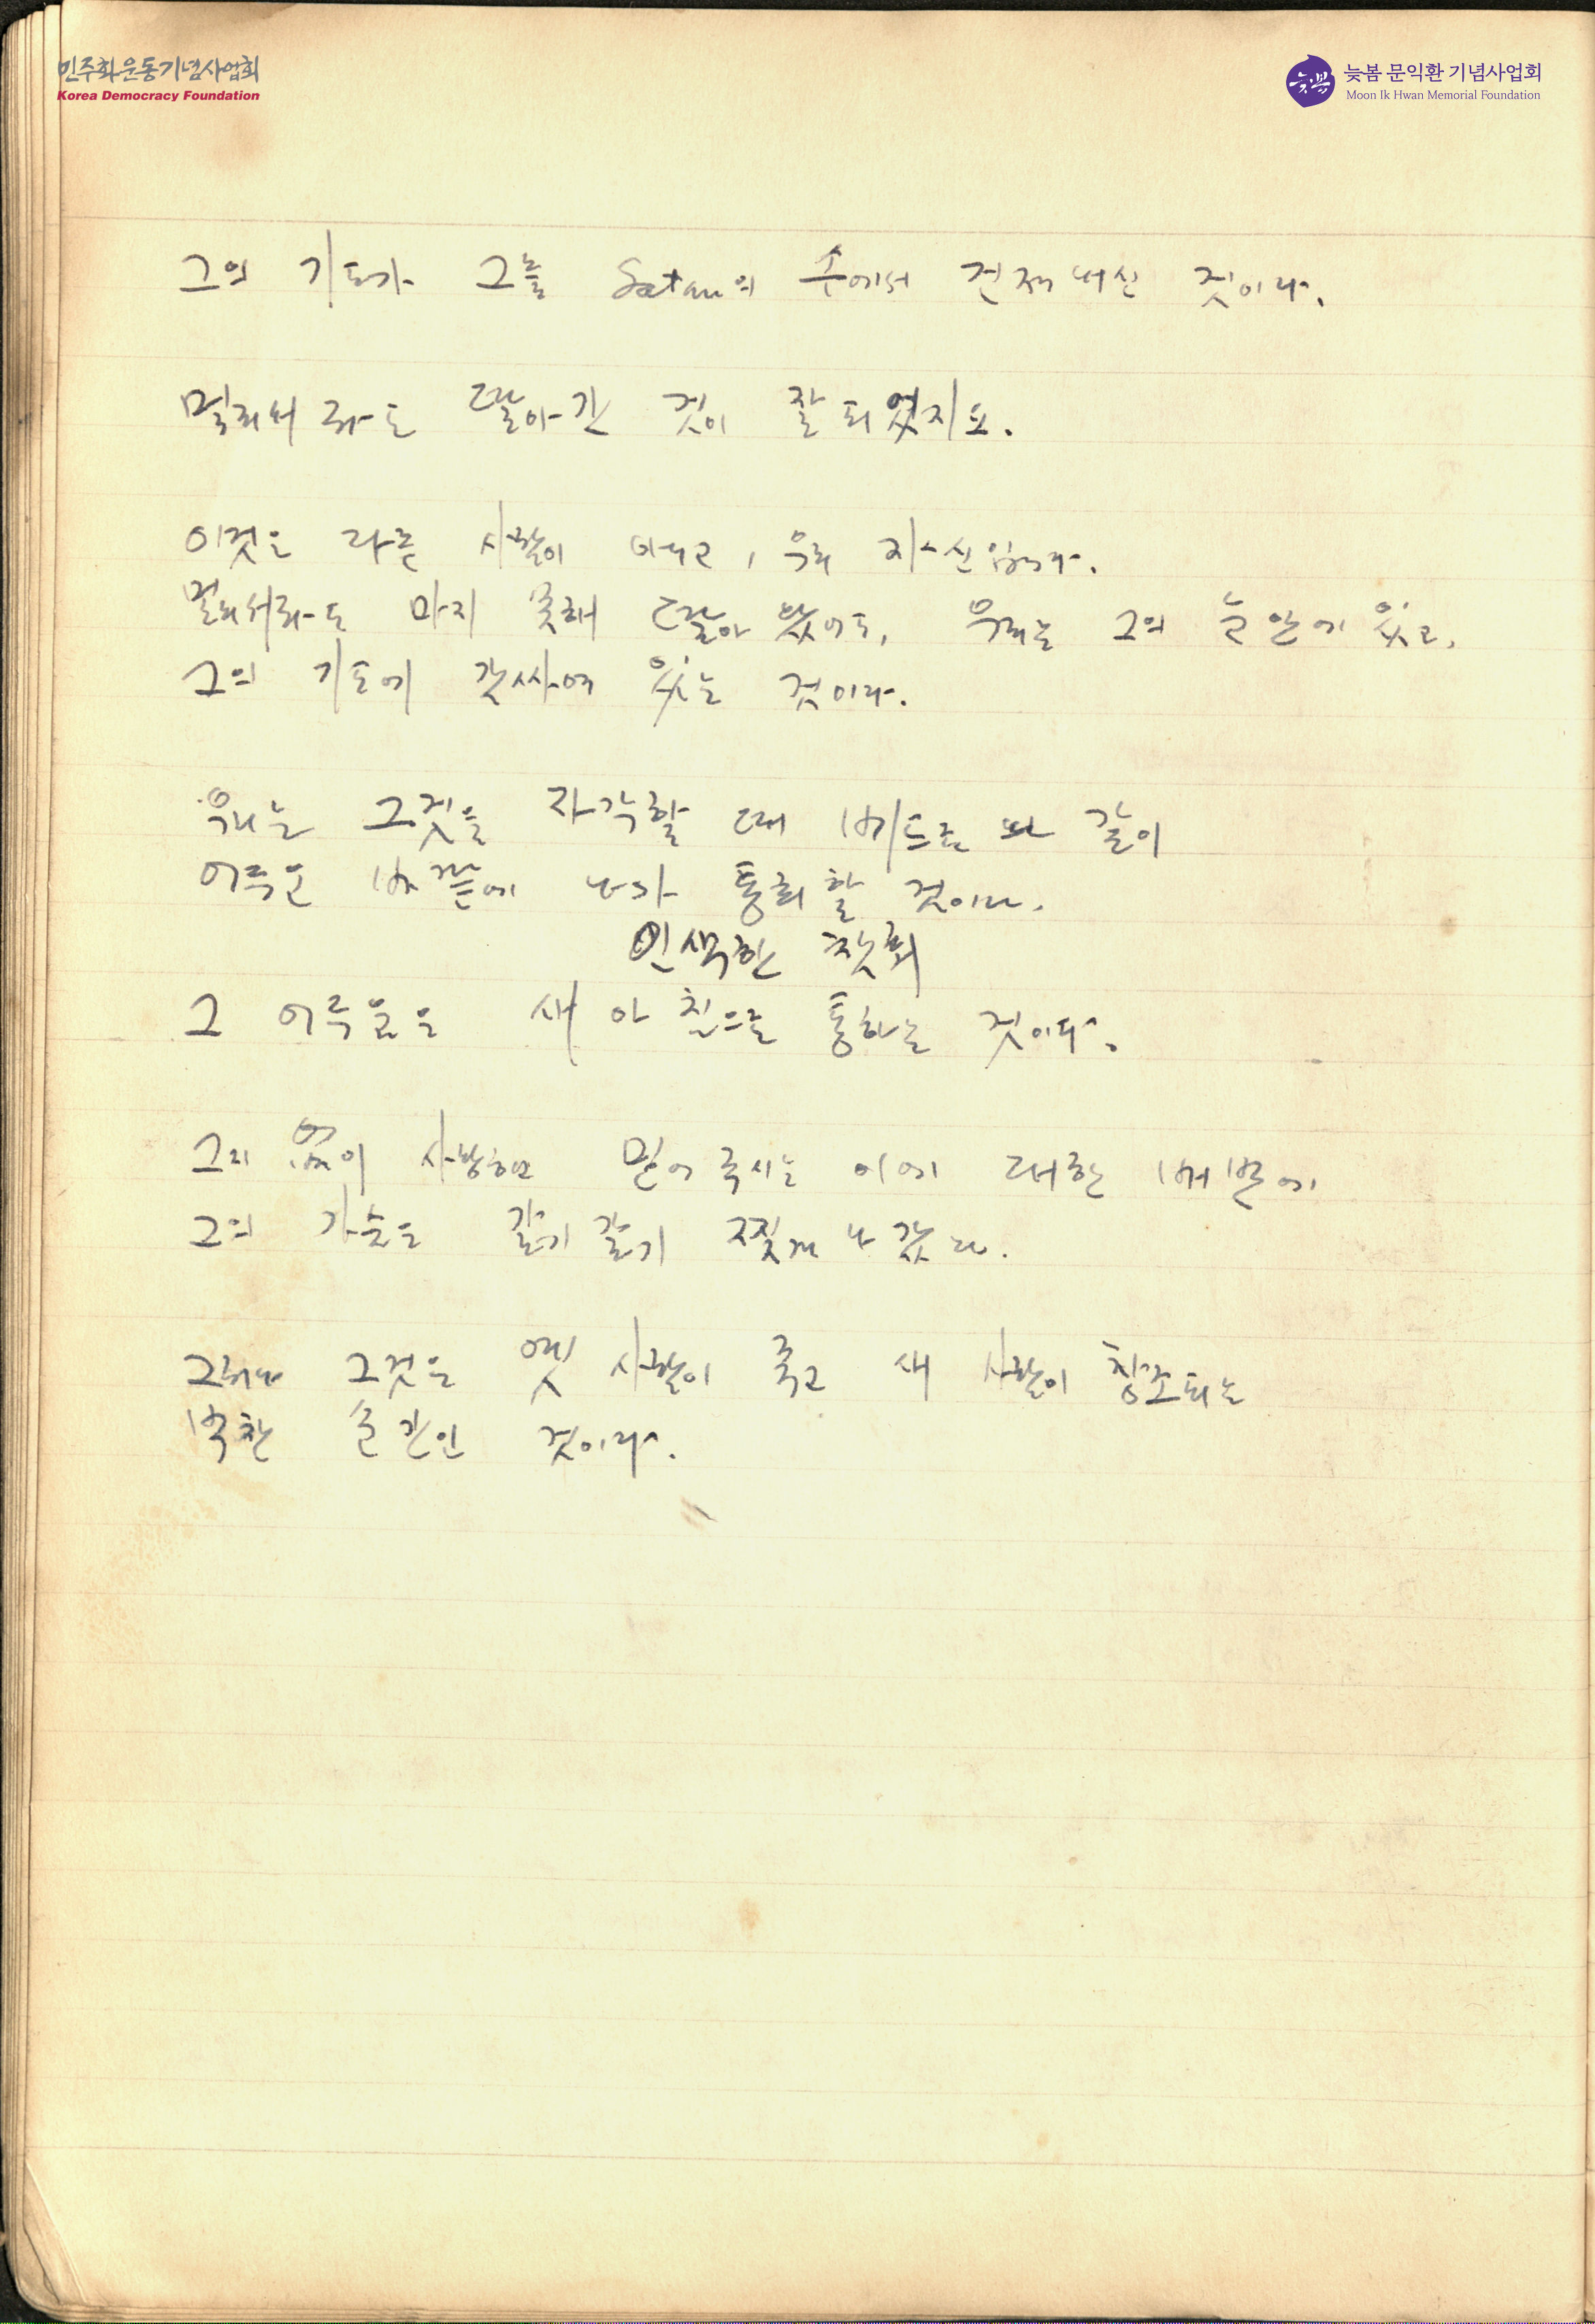 민주화운동기념사업회
Korea Democracy Foundation
늦봄
늦봄 문익환 기념사업회
Moon Ik Hwan Memorial Foundation
그의 기도가 그를 Satan의 손에서 건져내신 것이다.
멀리서라도 따라간 것이 잘 되었지요.
이것은 다른 사람이 아니고, 우리 자신입니다.
멀리서라도 마지 못해 따라 왔어도, 우리는 그의 눈 안에 있고,
그의 기도에 감싸여 있는 것이다.
우리는 그것을 자각할 때 베드로와 같이
어두운 바깥에 나가 통회할 것이다.
인색한 참회
그 어두움은 새 아침으로 통하는 것이다.
그지 없이 사랑하며 믿어 주시는 이에 대한 배반에
그의 가슴은 갈기갈기 찢겨 나갔다.
그러나 그것은 옛 사람이 죽고 새 사람이 창조되는
벅찬 순간인 것이다.